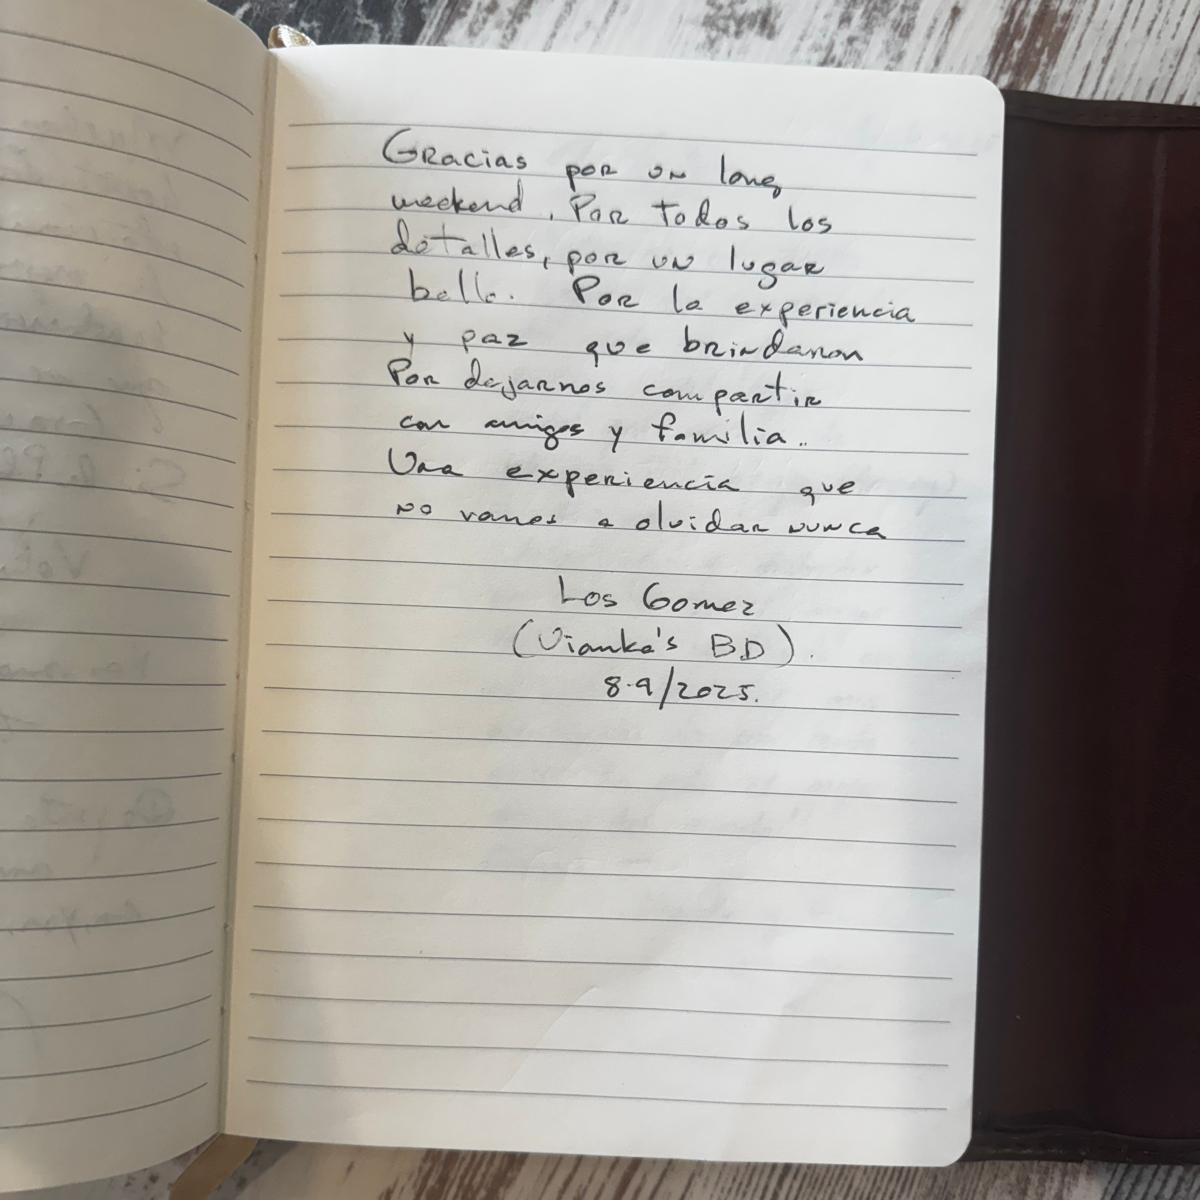 Gracias por un long
weekend. Por todos los
detalles, por un lugar
bello. Por la experiencia
y paz que brindaron
Por dejarnos compartir
con amigos y familia..
Una experiencia que
no vamos a olvidar nunca
Los Gomez
(Vianka's BD).
8-9/2025.